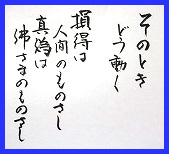 そのとき
どう動く
損得は
人間のものさし
真偽は
佛さまのものさし